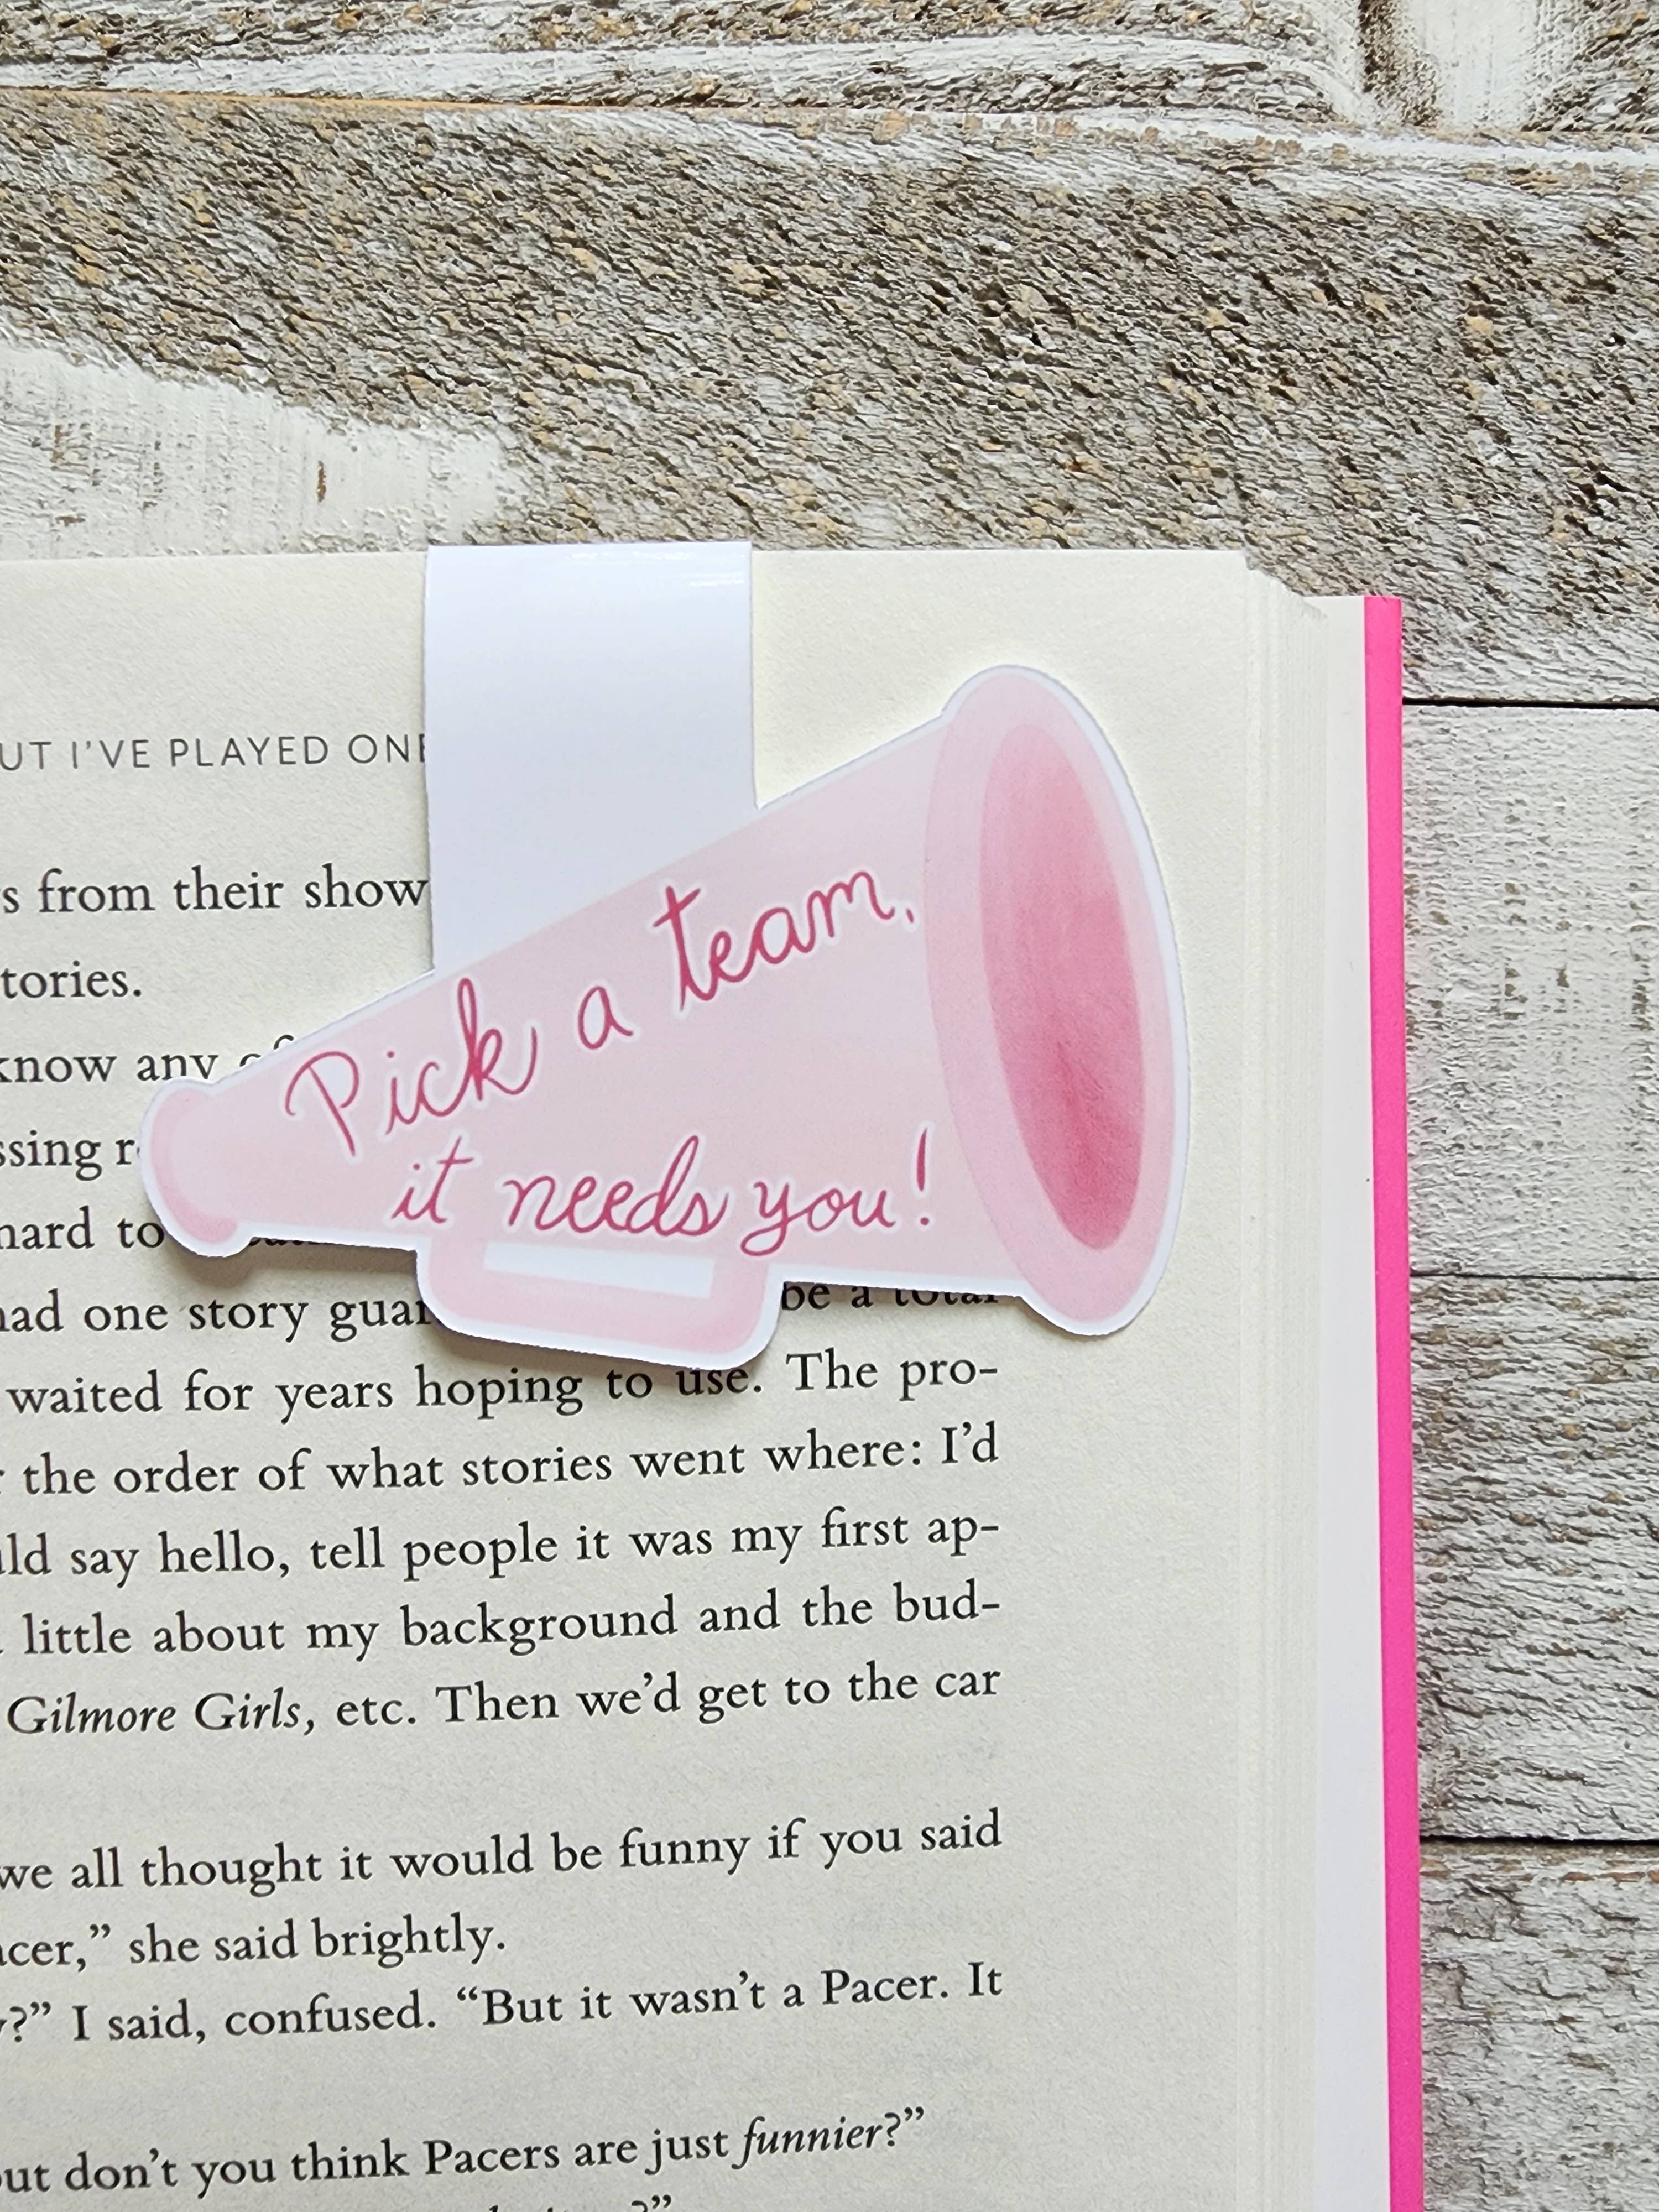 UT I'VE PLAYED ONE
s from their show
tories.
know any of
ssing r
hard to
Pick a team,
it needs you!
had one story guar be a total
waited for years hoping to use. The pro-
the order of what stories went where: I'd
uld say hello, tell people it was my first ap-
little about my background and the bud-
Gilmore Girls, etc. Then we'd get to the car
we all thought it would be funny if you said
acer,” she said brightly.
y?” I said, confused. “But it wasn't a Pacer. It
but don't you think Pacers are just funnier?”